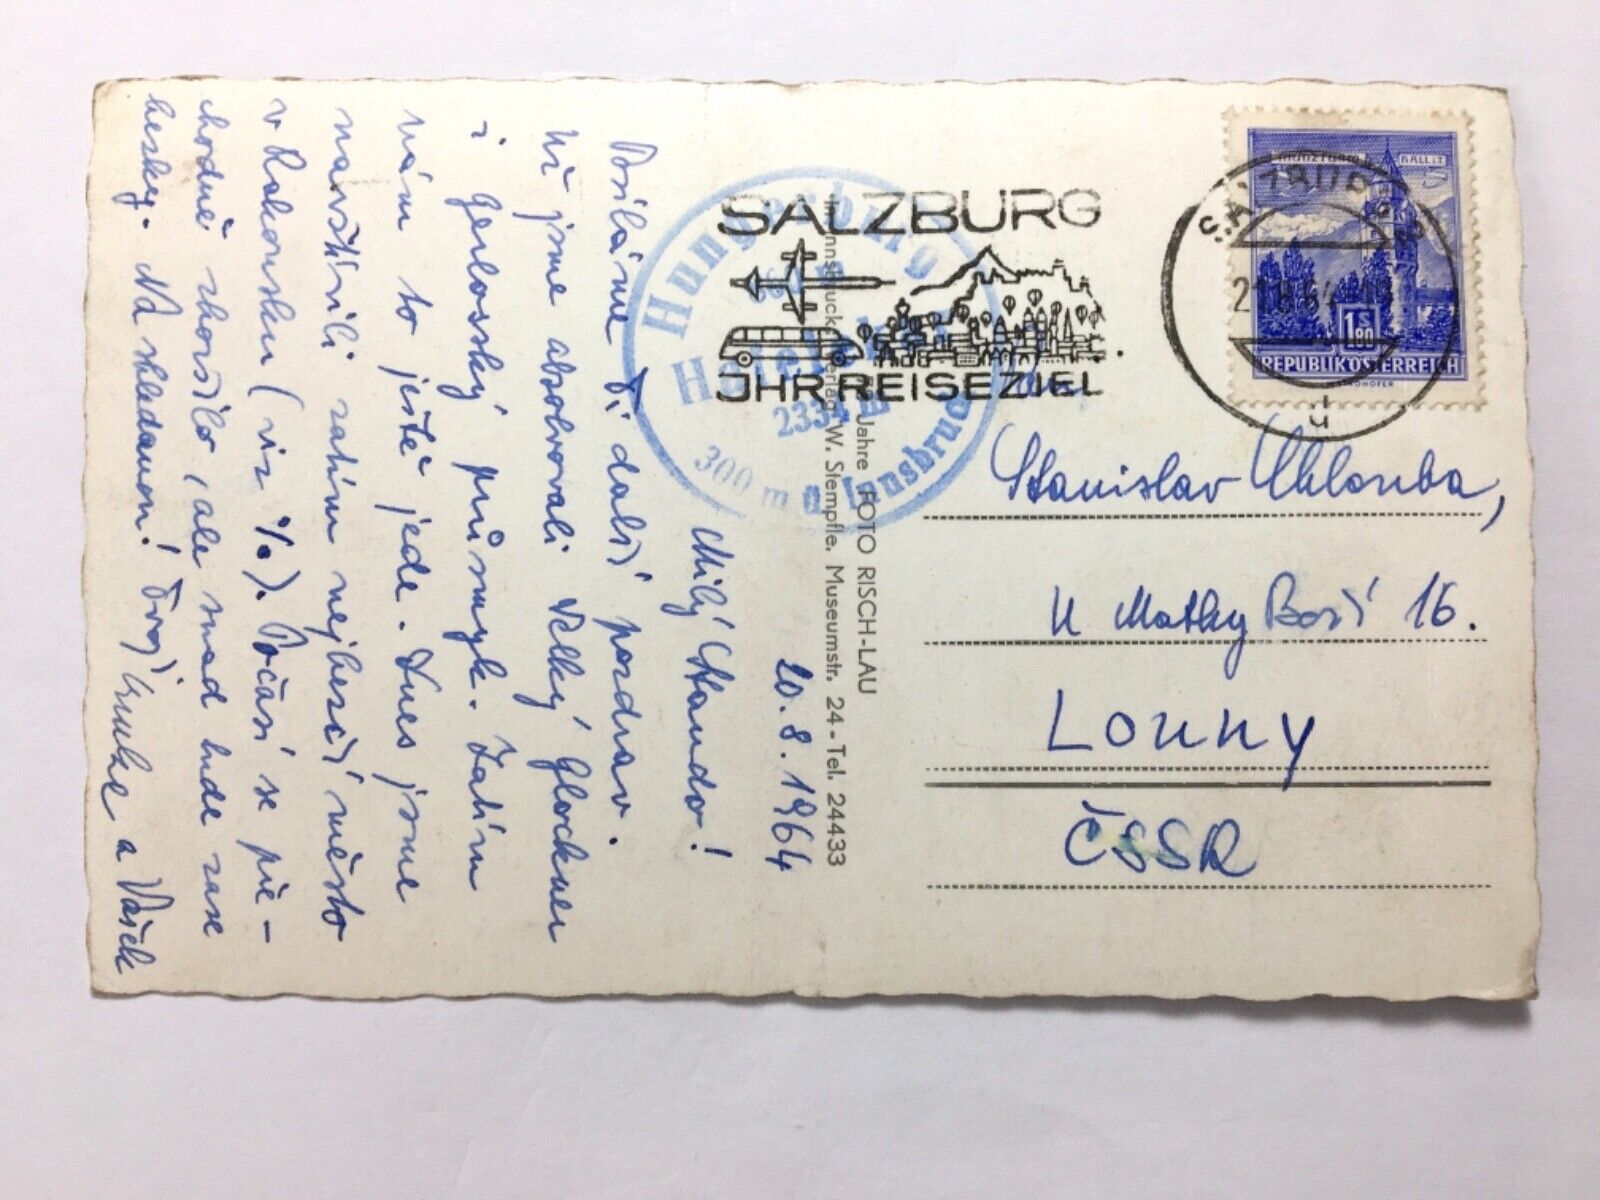 20. 8. 1964
Milý Stando!
Posíláme Ti další pozdrav.
Už jsme absolvovali Velký Glockner
i gerlosský průsmyk. Zatím
nám to ještě jede. Dnes jsme
navštívili zatím nejhezčí město
v Rakousku (viz %). Počasí se pře-
chodně zhoršilo, ale snad bude zase
hezky. Na shledanou! Tvoji a Vašek
SALZBURG
JHR REISEZIEL
Hungerburg
2334 m
300 m ü. Innsbruck
Jahre FOTO RISCH-LAU
Innsbruck Verlag W. Stempfle, Museumstr. 24 - Tel. 24433
SALZBURG
21.8.64
MÜNZTURM HALL i.T.
1 S 80
REPUBLIK ÖSTERREICH
Stanislav Chlouba,
U Matky Boží 16.
LOUNY
ČSSR